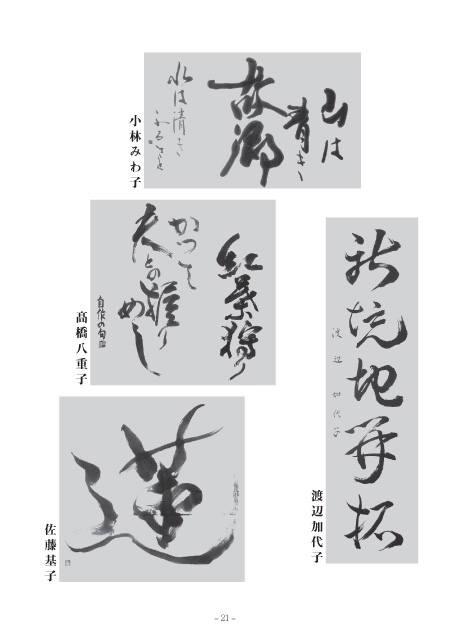 山は
青き
故郷
水は清き
ふるさと
小林みわ子
紅葉狩り
かつて
夫との握り
めし
自作の句
髙橋八重子
新境地開拓
渡辺加代子
渡辺加代子
蓮
佐藤基子
– 21 –